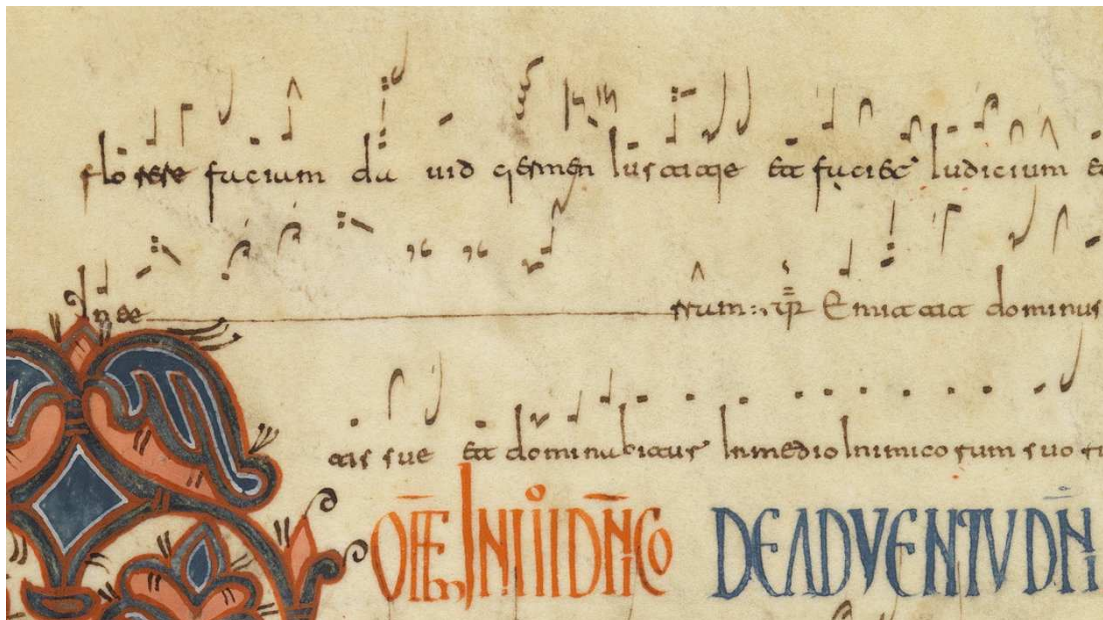 florere faciam dauid germen Iustitie Et faciet Iudicium
In te rram VR Emittat dominus
tis sue Et dominabitur In medio Inimicorum
IN II DNICO DE ADVENTV DNI